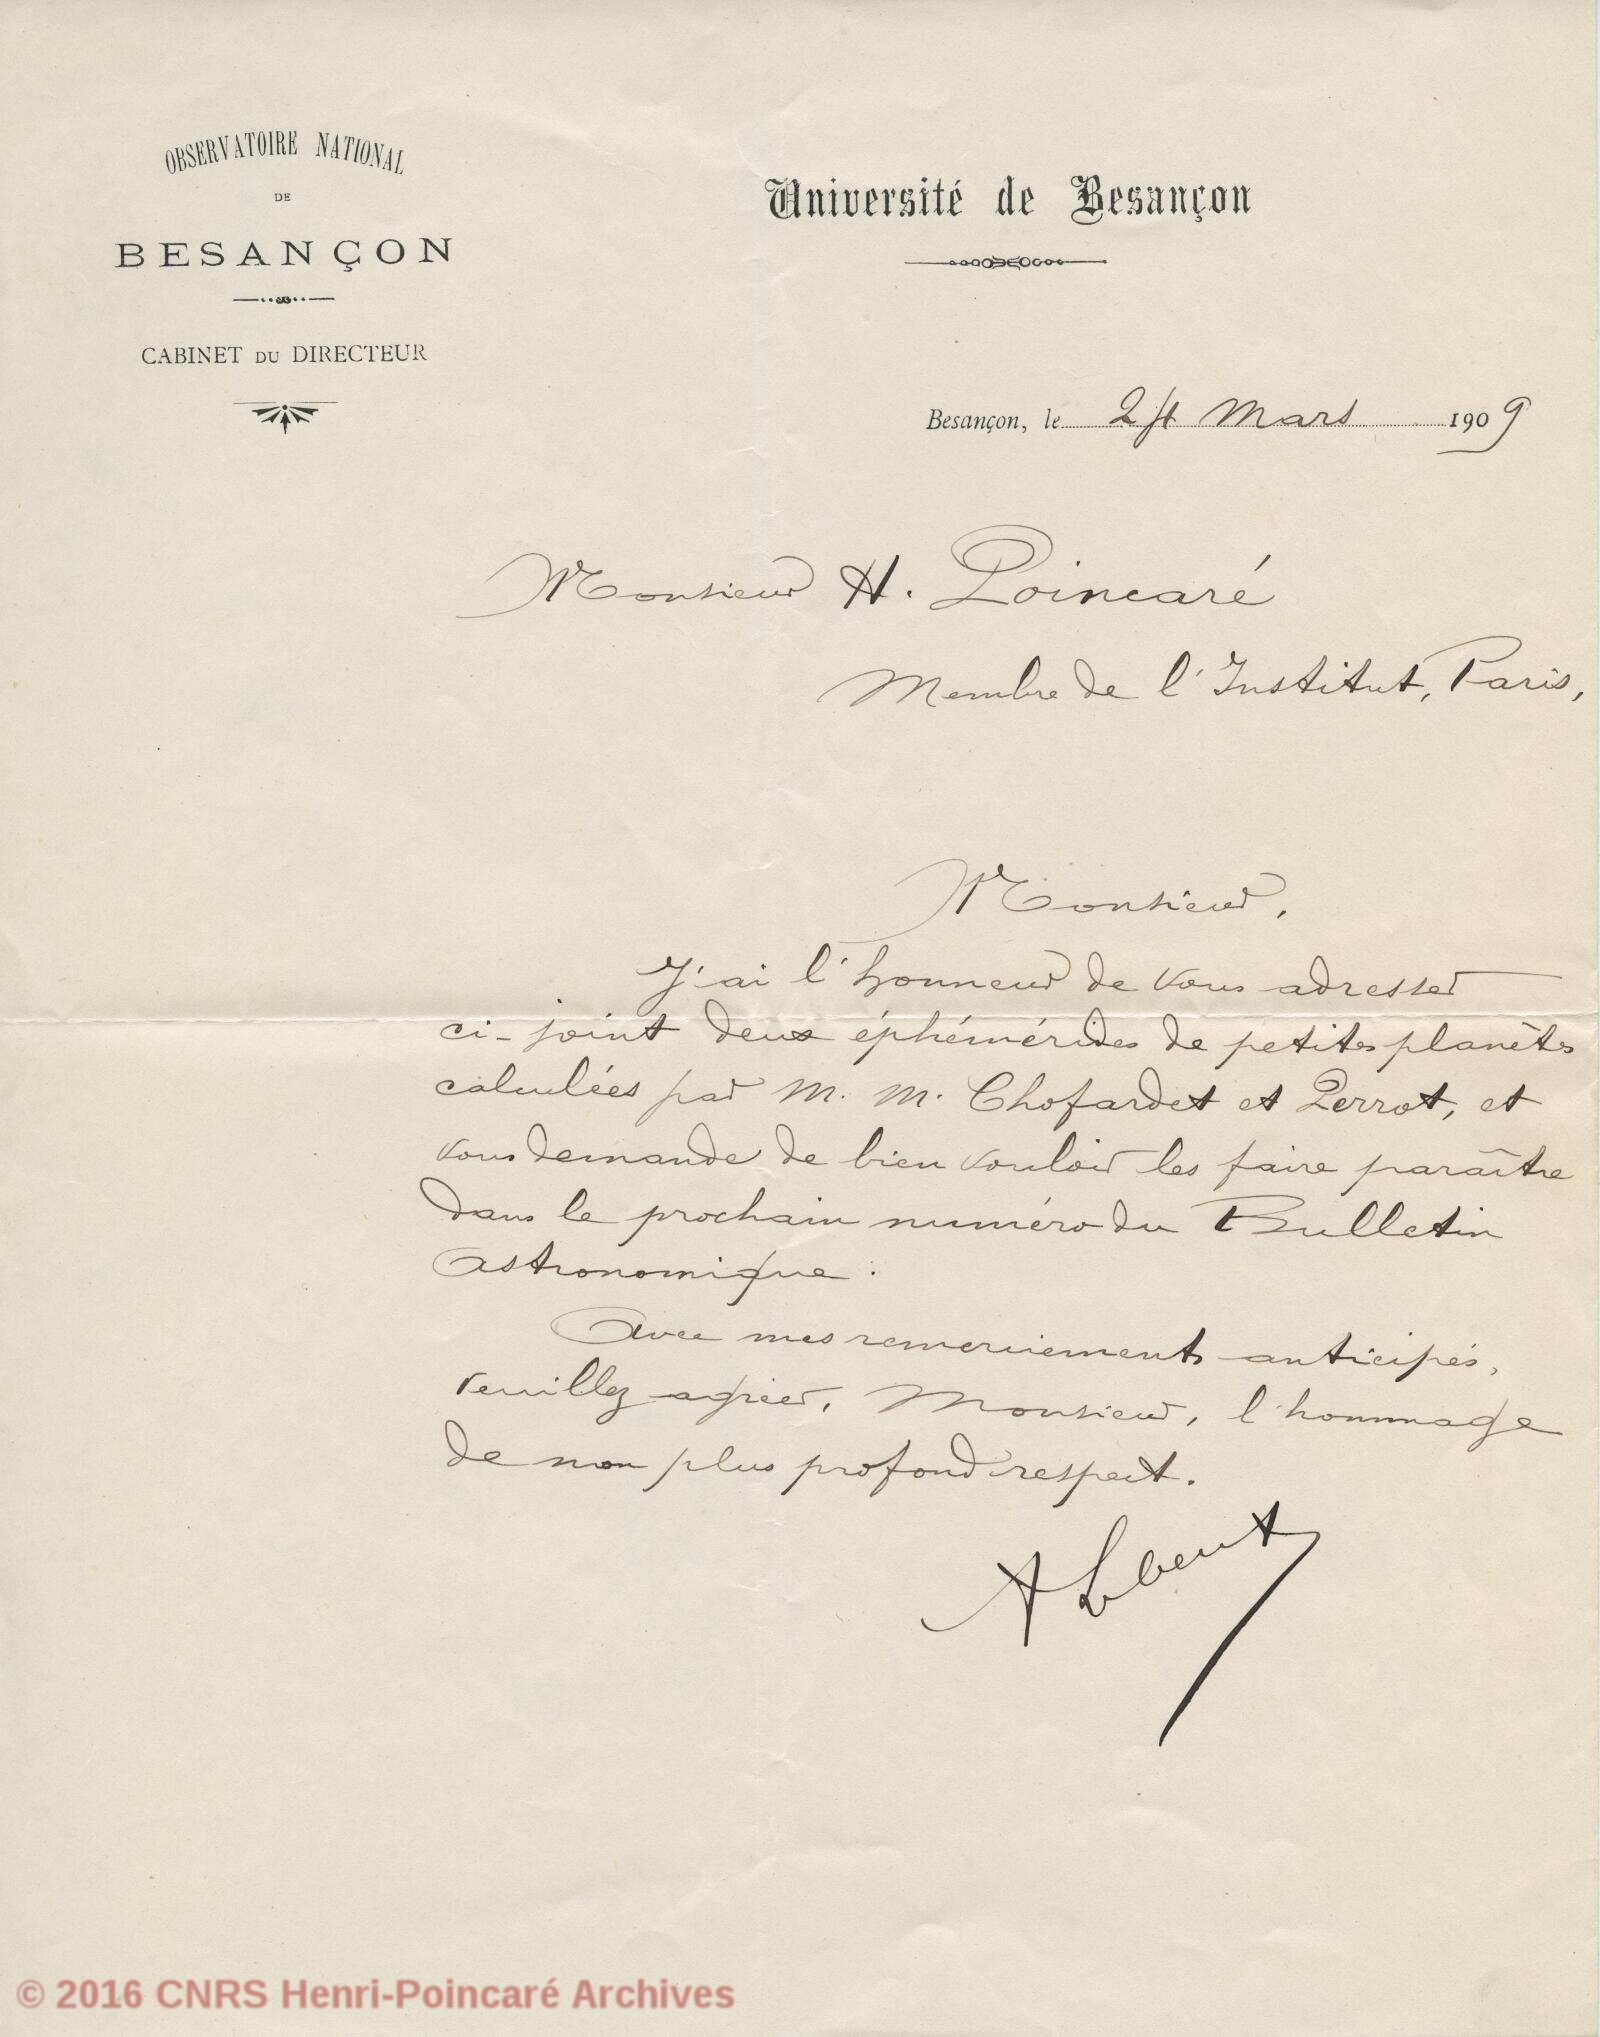 OBSERVATOIRE NATIONAL
DE
BESANÇON
CABINET DU DIRECTEUR
Université de Besançon
Besançon, le 24 Mars 1909
Monsieur H. Poincaré
Membre de l'Institut, Paris,
Monsieur,
J'ai l'honneur de vous adresser
ci-joint deux éphémérides de petites planètes
calculées par M. M. Chofardet et Perrot, et
vous demande de bien vouloir les faire paraître
dans le prochain numéro du Bulletin
Astronomique.
Avec mes remerciements anticipés,
veuillez agréer, Monsieur, l'hommage
de mon plus profond respect.
A Lebeuf
© 2016 CNRS Henri-Poincaré Archives